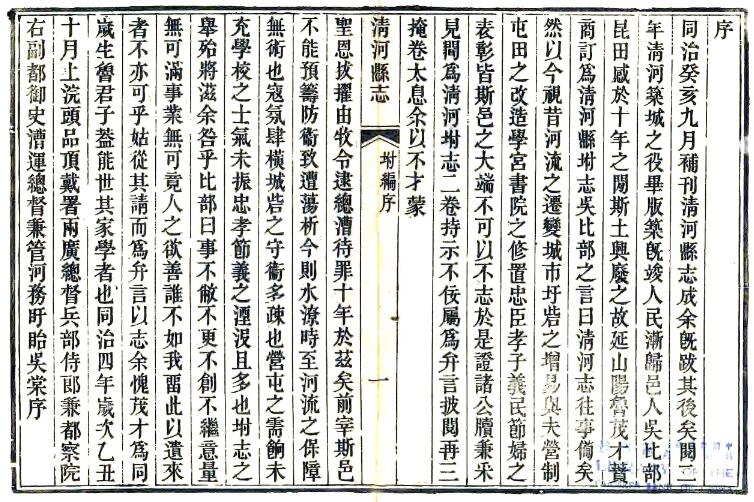 序
同治癸亥九月補刊清河縣志成余旣跋其後矣閱二
年清河築城之役畢版築旣竣人民漸歸邑人吳比部
昆田感於十年之閒斯土興廢之故延山陽魯茂才賁
商訂爲清河縣坿志吳比部之言曰清河志往事備矣
然以今視昔河流之遷變城市圩砦之增易與夫營制
屯田之改造學宮書院之修置忠臣孝子義民節婦之
表彰皆斯邑之大端不可以不志於是證諸公牘兼采
見聞爲清河坿志二卷持示不佞屬爲弁言披閱再三
掩卷太息余以不才蒙
清河縣志
坿編序
一
聖恩拔擢由牧令逮總漕待罪十年於茲矣前宰斯邑
不能預籌防衞致遭蕩析今則水潦時至河流之保障
無術也寇氛肆橫城砦之守衞多疎也營屯之需餉未
充學校之士氣未振忠孝節義之湮沒且多也坿志之
舉殆將滋余咎乎比部曰事不敝不更不創不繼意量
無可滿事業無可竟人之欲善誰不如我畱此以遺來
者不亦可乎姑從其請而爲弁言以志余愧茂才爲同
歲生魯君子葢能世其家學者也同治四年歲次乙丑
十月上浣頭品頂戴署兩廣總督兵部侍郎兼都察院
右副都御史漕運總督兼管河務盱眙吳棠序